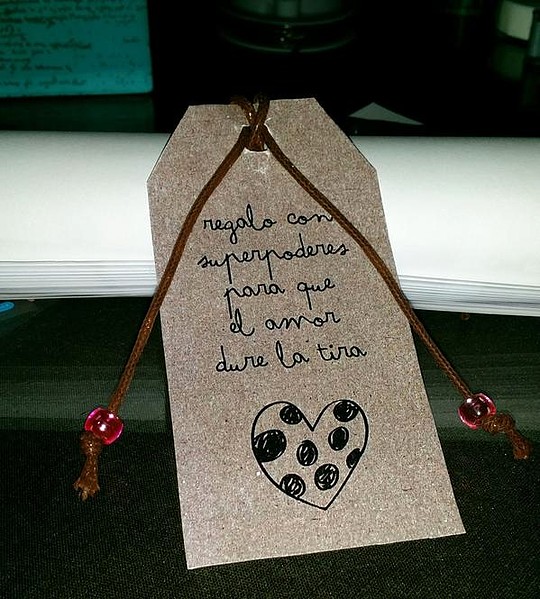 regalo con
superpoderes
para que
el amor
dure la tira